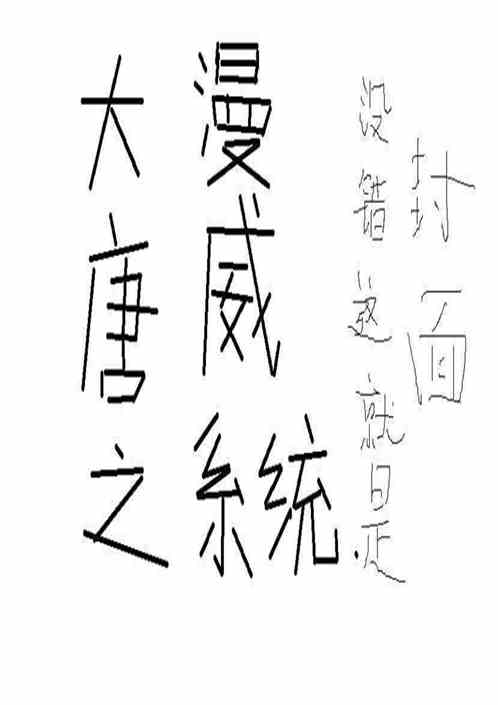 大唐之
漫威系统
没错这就是
封面